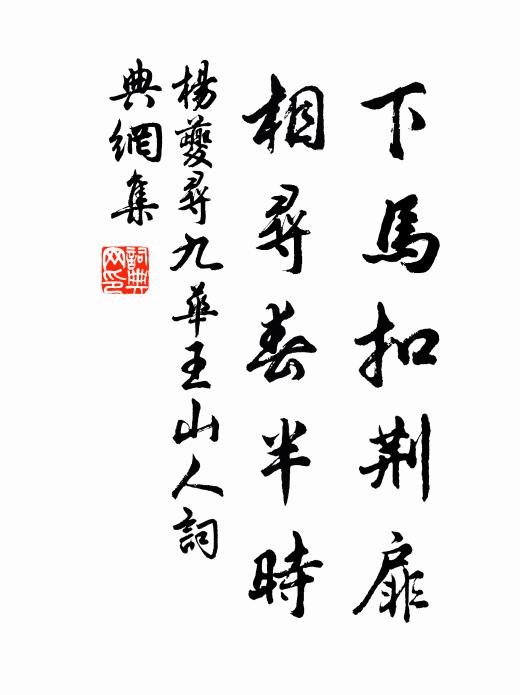 下馬扣荆扉
相尋春半時
楊夔尋九華王山人詞
典網集
詞典網印